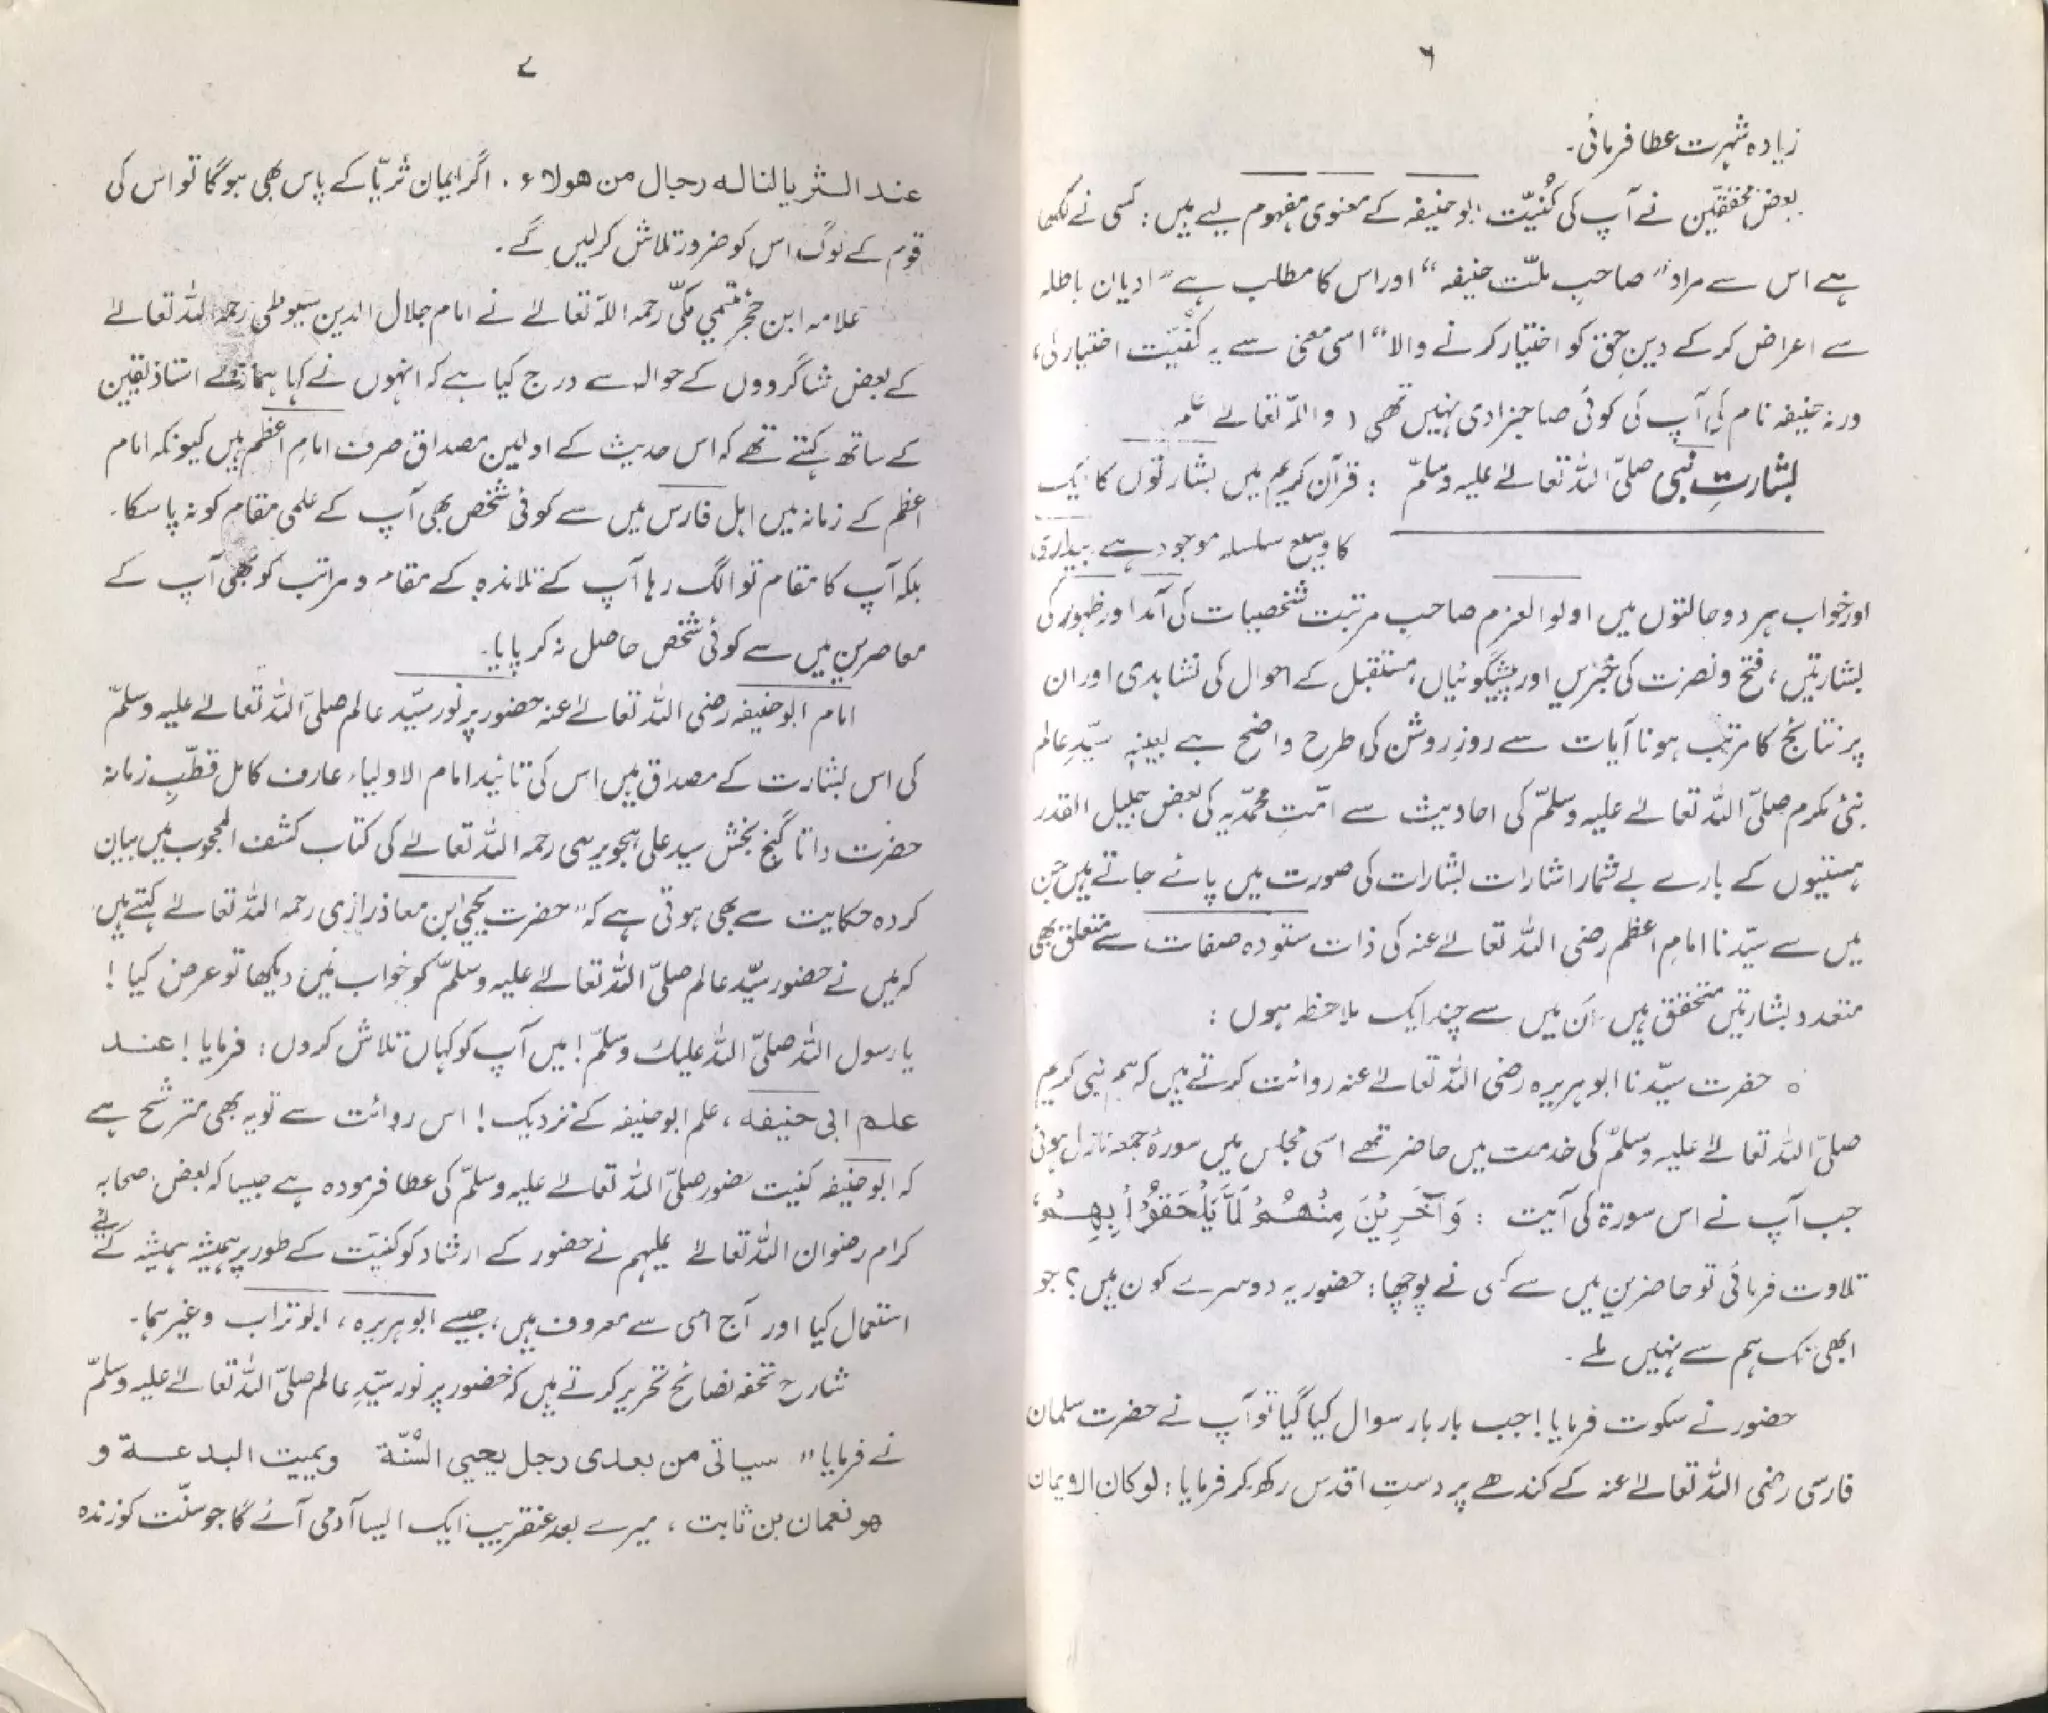 ۶
زیادہ شہرت عطا فرمائی۔
بعض محققین نے آپ کی کُنیّت ابو حنیفہ کے معنوی مفہوم لیے ہیں : کسی نے لکھا
ہے اس سے مراد " صاحبِ ملّت حنیفہ " اور اس کا مطلب ہے " ادیان باطلہ
سے اعراض کر کے دینِ حق کو اختیار کرنے والا " اسی معنی سے یہ کنیّت اختیار کی،
ورنہ حنیفہ نام کی آپ کی کوئی صاحبزادی نہیں تھی ( واللہ تعالےٰ اعلم
بشارتِ نبی صلیّ اللہ تعالےٰ علیہ وسلمّ : قرآن کریم میں بشارتوں کا ایک
کا وسیع سلسلہ موجود ہے بیداری
اور خواب ہر دو حالتوں میں اولو العزم صاحب مرتبت شخصیات کی آمد اور ظہور کی
بشارتیں ، فتح و نصرت کی خبریں اور پیشگوئیاں، مستقبل کے احوال کی نشاہدی اور ان
پر نتائج کا مرتب ہونا آیات سے روزِ روشن کی طرح واضح ہے بعینہٖ سیّدِ عالم
نبئ مکرم صلیّ اللہ تعالےٰ علیہ وسلمّ کی احادیث سے امّتِ محمّدیہ کی بعض جلیل القدر
ہستیوں کے بارے بے شمار اشارات بشارات کی صورت میں پائے جاتے ہیں جن
میں سے سیّدنا امامِ اعظم رضی اللہ تعالےٰ عنہ کی ذات ستودہ صفات سے متعلق بھی
متعدد بشارتیں متحقق ہیں۔ اُن میں سے چند ایک ملاحظہ ہوں :
○ حضرت سیّدنا ابوہریرہ رضی اللہ تعالےٰ عنہ روائت کرتے ہیں کہ ہم نبی کریم
صلیّ اللہ تعالےٰ علیہ وسلمّ کی خدمت میں حاضر تھے اسی مجلس میں سورۂ جمعہ نازل ہوئی
جب آپ نے اس سورۃ کی آیت : وَ آخَرِیْنَ مِنْھُمْ لَمَّا یَلْحَقُوْا بِھِمْ،
تلاوت فرمائی تو حاضرین میں سے کسی نے پوچھا : حضور یہ دوسرے کون ہیں؟ جو
ابھی تک ہم سے نہیں ملے ۔
حضور نے سکوت فرمایا! جب بار بار سوال کیا گیا تو آپ نے حضرت سلمان
فارسی رضی اللہ تعالےٰ عنہ کے کندھے پر دستِ اقدس رکھ کر فرمایا : لو کان الایمان
۷
عند الثریا لنالہ رجال من ھولاء ۔ اگر ایمان ثریّا کے پاس بھی ہو گا تو اس کی
قوم کے لوگ اس کو ضرور تلاش کر لیں گے ۔
علامہ ابن حجر ہیتمی مکیّ رحمہ اللہ تعالےٰ نے امام جلال الدین سیوطی رحمہ اللہ تعالےٰ
کے بعض شاگردوں کے حوالہ سے درج کیا ہے کہ انہوں نے کہا ہمارے استاذ یقین
کے ساتھ کہتے تھے کہ اس حدیث کے اولین مصداق صرف امامِ اعظم ہیں کیونکہ امام
اعظم کے زمانہ میں اہل فارس میں سے کوئی شخص بھی آپ کے علمی مقام کو نہ پا سکا ۔
بلکہ آپ کا مقام تو الگ رہا آپ کے تلامذہ کے مقام و مراتب کو بھی آپ کے
معاصرین میں سے کوئی شخص حاصل نہ کر پایا۔
امام ابو حنیفہ رضی اللہ تعالےٰ عنہ حضور پر نور سیّد عالم صلیّ اللہ تعالےٰ علیہ وسلمّ
کی اس بشارت کے مصداق ہیں اس کی تائید امام الاولیاء عارف کامل قطبِ زمانہ
حضرت داتا گنج بخش سید علی ہجویری رحمہ اللہ تعالےٰ کی کتاب کشف المحجوب میں بیان
کردہ حکایت سے بھی ہوتی ہے کہ " حضرت یحییٰ ابن معاذ رازی رحمہ اللہ تعالےٰ کہتے ہیں
کہ میں نے حضور سیّد عالم صلیّ اللہ تعالےٰ علیہ وسلمّ کو خواب میں دیکھا تو عرض کیا !
یا رسول اللہ صلیّ اللہ علیک وسلمّ ! میں آپ کو کہاں تلاش کروں : فرمایا ! عند
علم ابی حنیفہ ، علم ابو حنیفہ کے نزدیک ! اس روائت سے تو یہ بھی مترشح ہے
کہ ابوحنیفہ کنیت حضور صلیّ اللہ تعالےٰ علیہ وسلمّ کی عطا فرمودہ ہے جیسا کہ بعض صحابہ
کرام رضوان اللہ تعالےٰ علیہم نے حضور کے ارشاد کو کنیّت کے طور پر ہمیشہ ہمیشہ کے لئے
استعمال کیا اور آج اسی سے معروف ہیں، جیسے ابو ہریرہ ، ابو تراب وغیرہما۔
شارح تحفہ نصائح تحریر کرتے ہیں کہ حضور پر نور سیّدِ عالم صلیّ اللہ تعالےٰ علیہ وسلمّ
نے فرمایا " سیاتی من بعدی رجل یحیی السُّنّۃ ویمیت البدعۃ و
ھو نعمان بن ثابت ، میرے بعد عنقریب ایک ایسا آدمی آئے گا جو سنّت کو زندہ